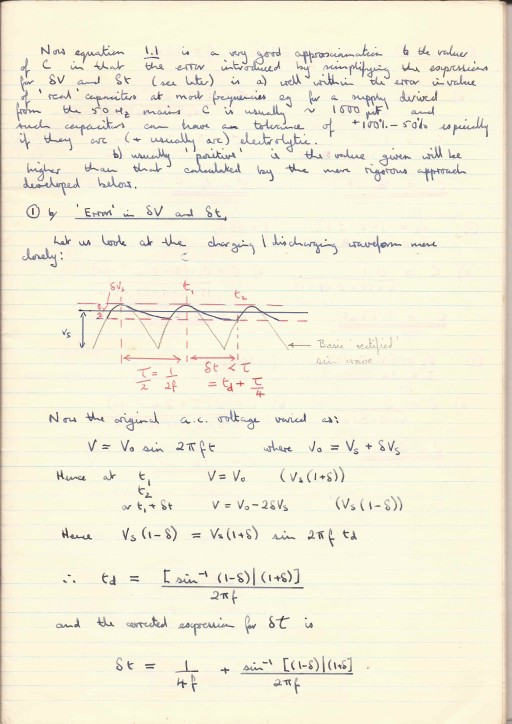 Now equation 1.1 is a very good approximation to the value
of C in that the error introduced by simplifying the expressions
for δV and δt (see later) is a) well within the error in value
of 'real' capacitors at most frequencies eg for a supply derived
from the 50 Hz mains C is usually ~ 1000 μF and
such capacitors can have an tolerance of +100% - 50% especially
if they are (+ usually are) electrolytic.
b) usually 'positive' is the value given will be
higher than that calculated by the more rigorous approach
developed below.
① b) 'Errors' in δV and δt.
Let us look at the charging / discharging waveform more
closely:
δVs t1 t2
Vs
τ/2 = 1/2f
δt < τ
= td + τ/4
Basic 'rectified'
sin wave
Now the original a.c. voltage varied as:
V = Vo sin 2πft where Vo = Vs + δVs
Hence at t1 V = Vo (Vs(1+δ))
t2
or t1 + δt V = Vo - 2δVs (Vs(1-δ))
Hence Vs(1-δ) = Vs(1+δ) sin 2πf td
∴ td = [sin⁻¹ (1-δ)|(1+δ)] / 2πf
and the corrected expression for δτ is
δt = 1/4f + sin⁻¹ [(1-δ)|(1+δ)] / 2πf